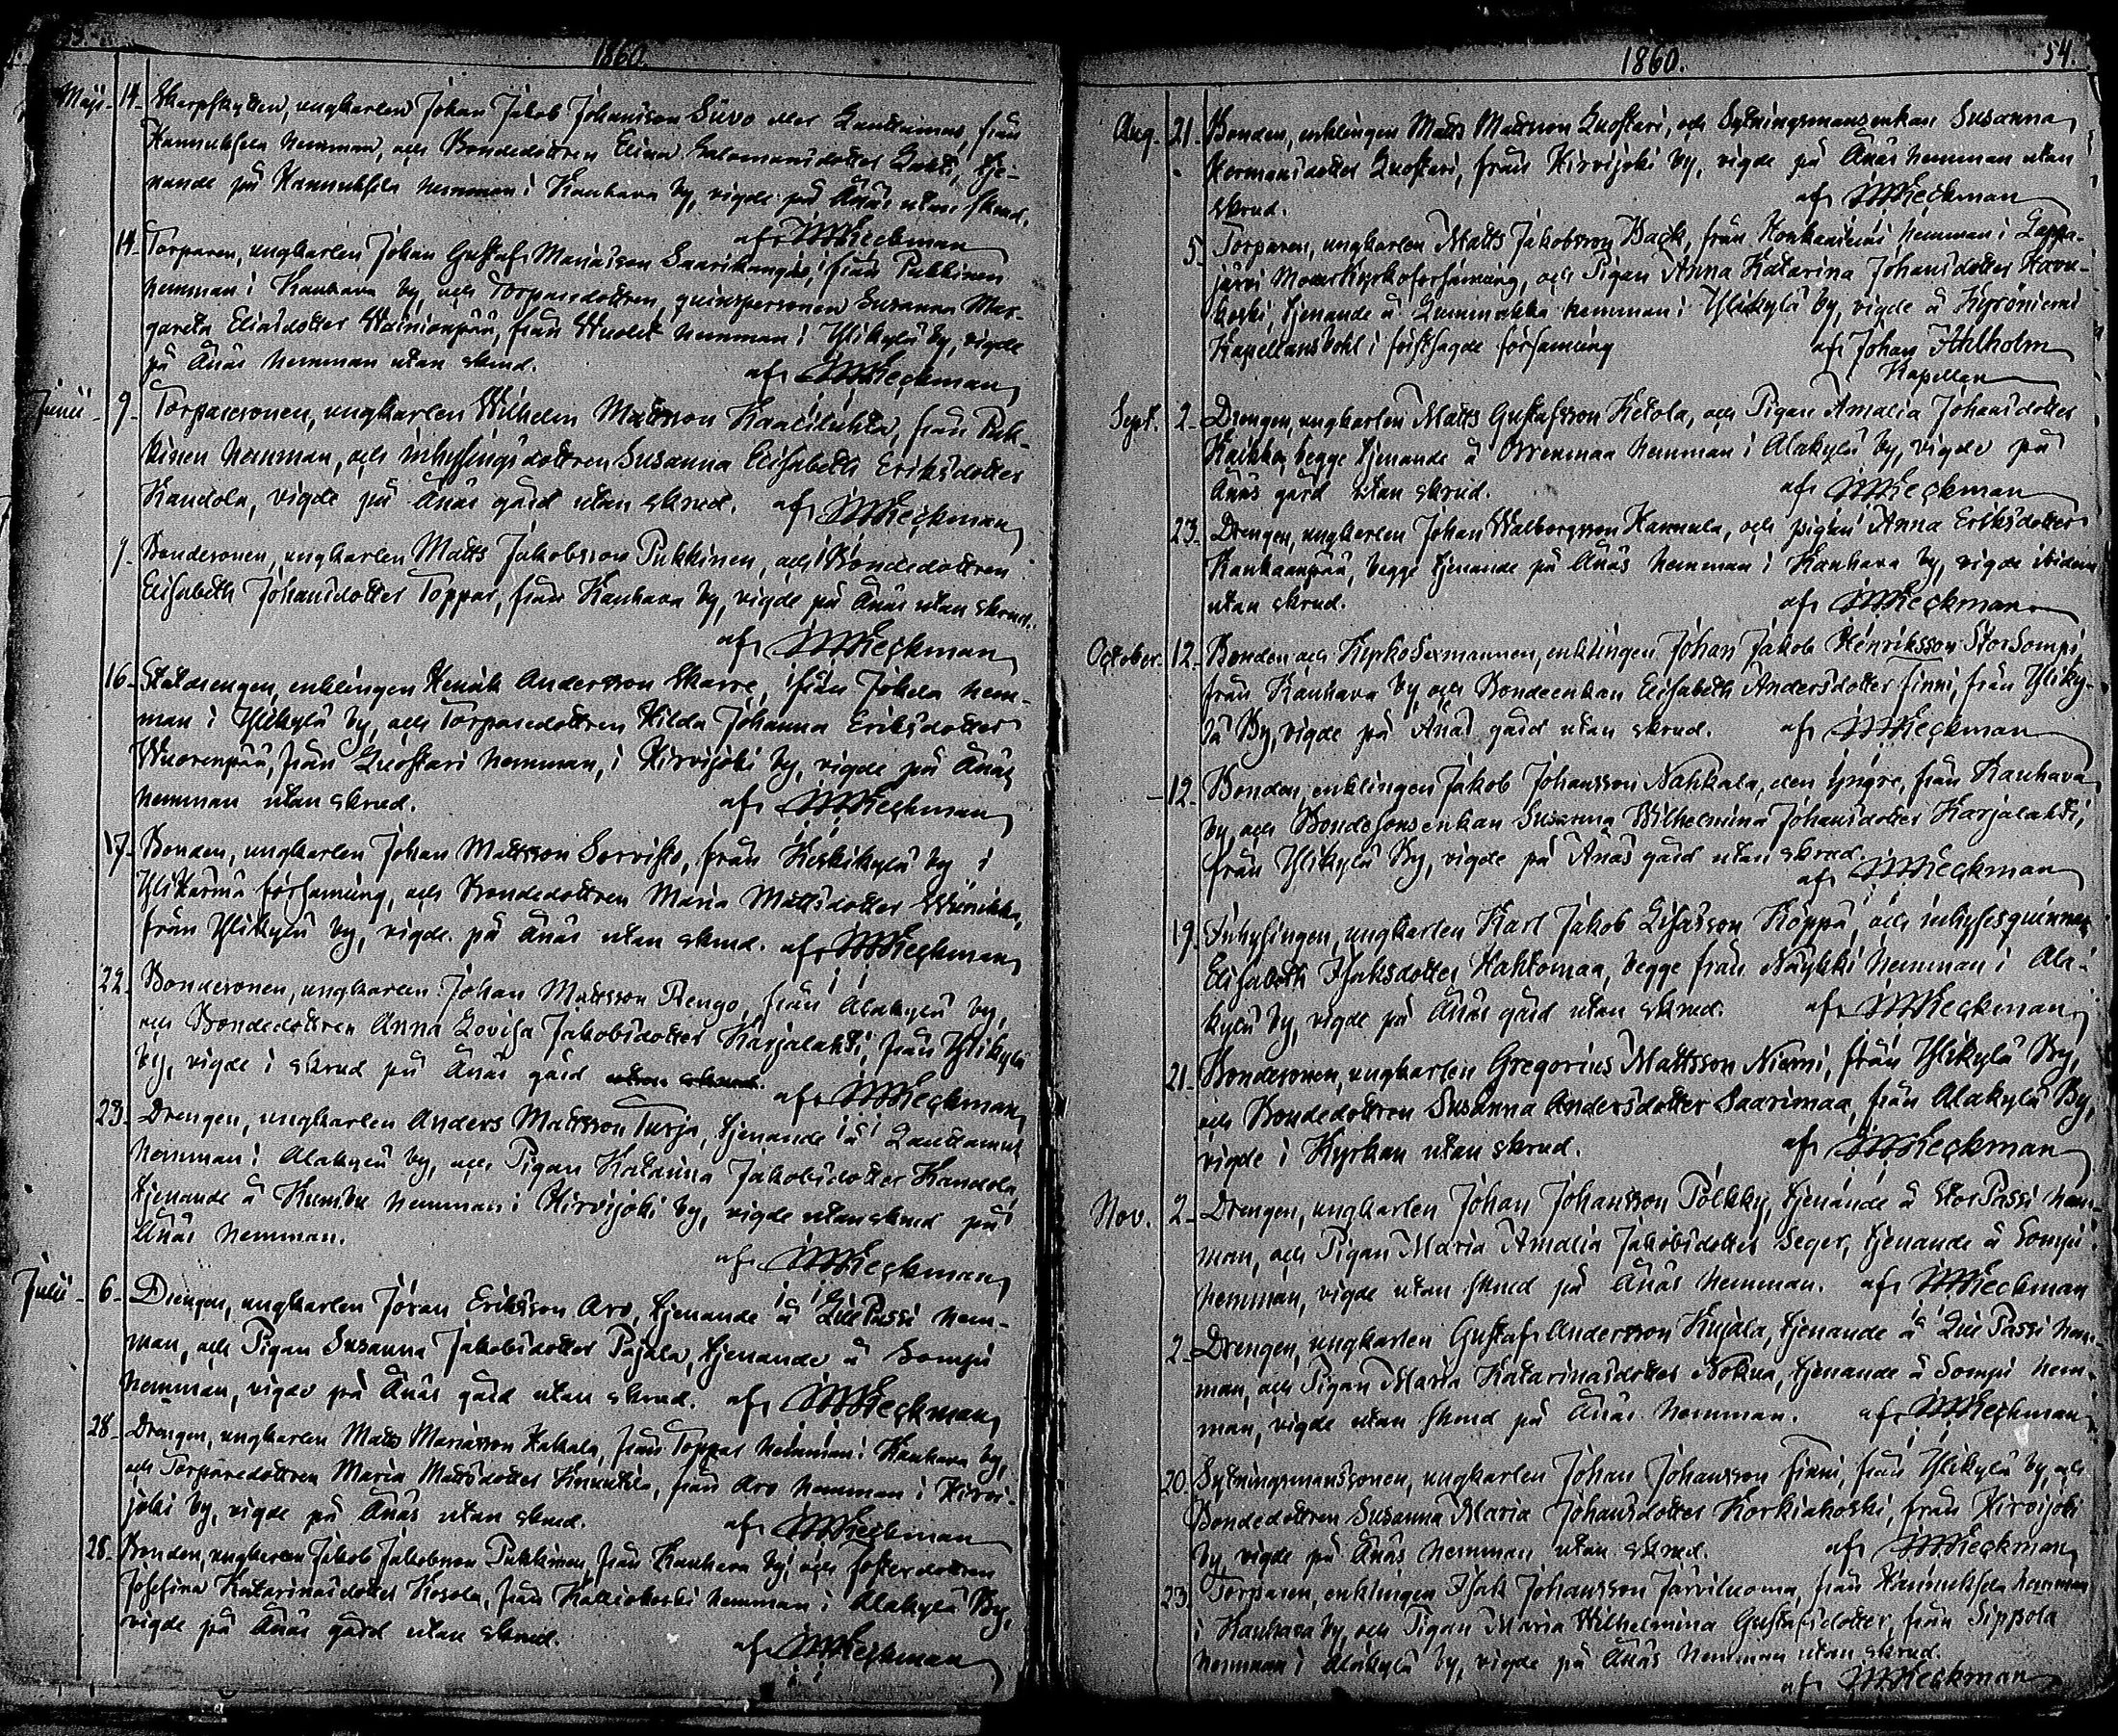 1860.
Maji 14. Skarpskytten, ungkarlen Johan Jakob Johansson Siivo eller Lauttamus, från
Hannuksela hemman, och Bondedottren Elina Salomonsdotter Lahti, tje-
nande på Hannuksela hemman i Kauhava by, vigde på Ånäs utan skrud.
af MHeckman
14. Torparen, ungkarlen Johan Gustaf Mariasson Saarikangas, från Pukkinen
hemman i Kauhava by, och Torparedottren, quinspersonen Susanna Mar-
gareta Eliasdotter Wainionpää, från Wuolet hemman i Ylikylä by, vigde
på Ånäs hemman utan skrud. af MHeckman
Junii 9. Torparesonen, ungkarlen Wilhelm Mattsson Kaaliluhta, från Puk-
kinen hemman, och inhysingsdottren Susanna Elisabeth Eriksdotter
Kandola, vigde på Ånäs gård utan skrud. af MHeckman
9. Bondesonen, ungkarlen Matts Jakobsson Pukkinen, och Bondedottren
Elisabeth Johansdotter Toppar, från Kauhava by, vigde på Ånäs utan skrud.
af MHeckman
16. Staldrengen, enklingen Henrik Andersson Skarre, från Jokela hem-
man i Ylikylä by, och Torparedottren Hilda Johanna Eriksdotter
Wuorenpää, från Luostari hemman, i Hirvijoki by, vigde på Ånäs
hemman utan skrud. af MHeckman
17. Bonden, ungkarlen Johan Mattsson Sorvisto, från Keskikylä by i
Ylihärmä församling, och Bondedottren Maria Mattsdotter Wiirikka,
från Ylikylä by, vigde på Ånäs utan skrud. af MHeckman
22. Bondesonen, ungkarlen Johan Mattsson Rengo, från Alakylä by,
och Bondedottren Anna Lovisa Jakobsdotter Karjalahti, från Ylikylä
by, vigde i skrud på Ånäs gård utan skrud. af MHeckman
23. Drengen, ungkarlen Anders Mattsson Turja, tjenande å Lauttamus
hemman i Alakylä by, och Pigan Katarina Jakobsdotter Kandola,
tjenande å hemman i Hirvijoki by, vigde utan skrud på
Ånäs hemman.
af MHeckman
Julii 6. Drengen, ungkarlen Jöran Eriksson Aro, tjenande å Lill Passi hem-
man, och Pigan Susanna Jakobsdotter Pajala, tjenande å Sompi
hemman, vigde på Ånäs gård utan skrud. af MHeckman
28. Drengen, ungkarlen Matts Mariasson Hakala, från Toppar hemman i Kauhava by,
och Torparedottren Maria Mattsdotter Knuutila, från Aro hemman i Hirvi-
joki by, vigde på Ånäs utan skrud. af MHeckman
28. Bonden, ungkarlen Jakob Jakobsson Pukkinen, från Kauhava by, och fosterdottren
Josefina Katarinasdotter Kosola, från Kalliokoski hemman i Alakylä By,
vigde på Ånäs gård utan skrud.
af MHeckman
1860. 54.
Aug. 21. Bonden, enklingen Matts Mattsson Luostari, och Sytningsmansenkan Susanna
Hermansdotter Luostari, från Hirvijoki by, vigde på Ånäs hemman utan
skrud. af MHeckman
5. Torparen, ungkarlen Matts Jakobsson Back, från Honkaniemi hemman i Lappa-
järvi Moderkyrkoförsamling, och Pigan Anna Katarina Johansdotter
koski, tjenande å Luminakka hemman i Ylikylä by, vigde å Kyröniemi
Kapellansbohl i förstsagde församling af Johan Ahlholm
Kapellan
Sept. 2. Drengen, ungkarlen Matts Gustafsson Ketola, och Pigan Amalia Johansdotter
Kaikko, begge tjenande å Orrenmaa hemman i Alakylä by, vigde på
Ånäs gård utan skrud. af MHeckman
23. Drengen, ungkarlen Johan Walborgsson Kannala, och pigan Anna Eriksdotter
Kankaanpää, begge tjenande på Ånäs hemman i Kauhava by, vigde ibidem
utan skrud. af MHeckman
October 12. Bonden och Kyrko Sexmannen, enklingen Johan Jakob Henriksson StorSompi,
från Kauhava by och Bondeenkan Elisabeth Andersdotter Finni, från Yliky-
lä By, vigde på Ånäs gård utan skrud. af MHeckman
12. Bonden, enklingen Jakob Johansson Nahkala, den yngre, från Kauhava
by, och Bondesonsenkan Susanna Wilhelmina Johansdotter Karjalahti,
från Ylikylä By, vigde på Ånäs gård utan skrud.
af MHeckman
19. Inhysingen, ungkarlen Karl Jakob Lisasson Koppa, och inhysesquinnan
Elisabeth Isaksdotter Hahtomaa, begge från Näykki hemman i Ala-
kylä by, vigde på Ånäs gård utan skrud. af MHeckman
21. Bondesonen, ungkarlen Gregorius Mattsson Niemi, från Ylikylä By,
och Bondedottren Susanna Andersdotter Saarimaa, från Alakylä By,
vigde i Kyrkan utan skrud. af MHeckman
Nov. 2. Drengen, ungkarlen Johan Johansson Pölkky, tjenande å Stor Passi hem-
man, och Pigan Maria Amalia Jakobsdotter Seger, tjenande å Sompi
hemman, vigde utan skrud på Ånäs hemman. af MHeckman
2. Drengen, ungkarlen Gustaf Andersson Kujala, tjenande å Lill Passi hem-
man, och Pigan Maria Katarinasdotter Nokua, tjenande å Sompi hem-
man, vigde utan skrud på Ånäs hemman. af MHeckman
20. Sytningsmanssonen, ungkarlen Johan Johansson Finni, från Ylikylä by, och
Bondedottren Susanna Maria Johansdotter Korkiakoski, från Hirvijoki
by, vigde på Ånäs hemman utan skrud. af MHeckman
23. Torparen, enklingen Isak Johansson Järviluoma, från Hannuksela hemman
i Kauhava by, och Pigan Maria Wilhelmina Gustafsdotter, från Sippola
hemman i Alakylä by, vigde på Ånäs hemman utan skrud.
af MHeckman